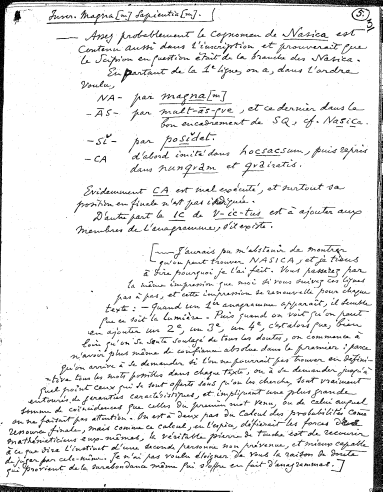 Inscr. Magna[m] Sapientia[m].
5.
— Assez probablement le cognomen de Nasica est
contenu aussi dans l'inscription et prouverait que
le Scipion en question était de la branche des Nasica.
En partant de la 1e ligne, on a, dans l'ordre
voulu,
NA- par magna[m]
-AS- par mult-as-que, et ce dernier dans le
bon encadrement de SQ, cf. Nasica.
-SI- par posidet.
-CA d'abord imité dans hocsacsum, puis repris
dans nunqram et qraieatis.
Evidemment CA est mal exécuté, et surtout sa
position en finale n'est pas indiquée.
D'autre part le IC de V-ic-tus est à ajouter aux
membres de l'anagramme, s'il existe.
[— J'aurais pu m'abstenir de montrer
qu'on peut trouver NASICA, et je tiens
à dire pourquoi je l'ai fait. Vous passerez par
la même impression que moi si vous suivez ces lignes
pas à pas, et cette impression se renouvelle pour chaque
texte: — Quand un 1er anagramme apparaît, il semble
que ce soit la lumière. Puis quand on voit qu'on peut
en ajouter un 2e, un 3e, un 4e, c'est alors que, bien
loin qu'on se sente soulagé de tous les doutes, on commence à
n'avoir plus même de confiance absolue dans le premier: parce
qu'on arrive à se demander si l'on ne pourrait pas trouver en défini-
-tive tous les mots possibles dans chaque texte, ou à se demander jusqu'à
quel point ceux qui se sont offerts sans qu'on les cherche, sont vraiment
entourés de garanties caractéristiques, et impliquent une plus grande
somme de coïncidences que celles du premier mot venu, ou de celui auquel
on ne faisait pas attention. On est à deux pas du calcul des probabilités comme
ressource finale, mais comme ce calcul, en l'espèce, défierait les forces des
mathématiciens eux-mêmes, la véritable pierre de touche est de recourir
à ce que dire l'instinct d'une seconde personne non prévenue, et mieux capable
de juger par cela-même. Je n'ai pas voulu éloigner de vous la raison de doute
qui provient de la surabondance même qui s'offre en fait d'anagrammes.]